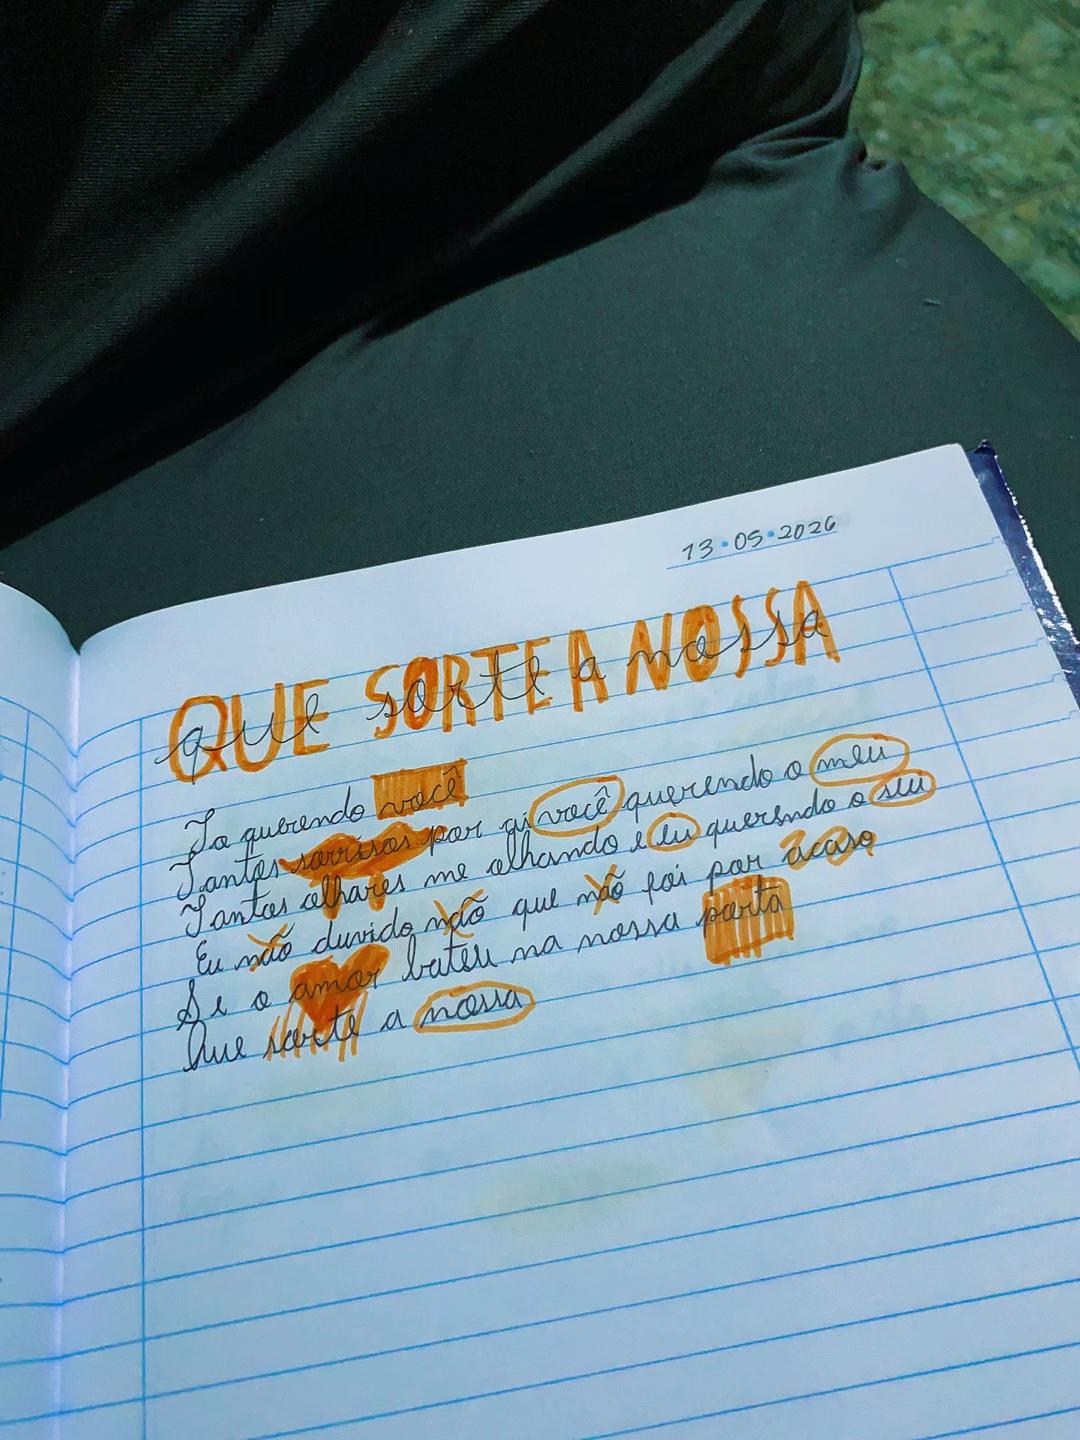 13.05.2026
QUE SORTE A NOSSA
que sorte a nossa
To querendo você
Tantos sorrisos por aí você querendo o meu
Tantos olhares me olhando e eu querendo o seu
Eu não duvido não que não foi por acaso
Se o amor bateu na nossa porta
Que sorte a nossa